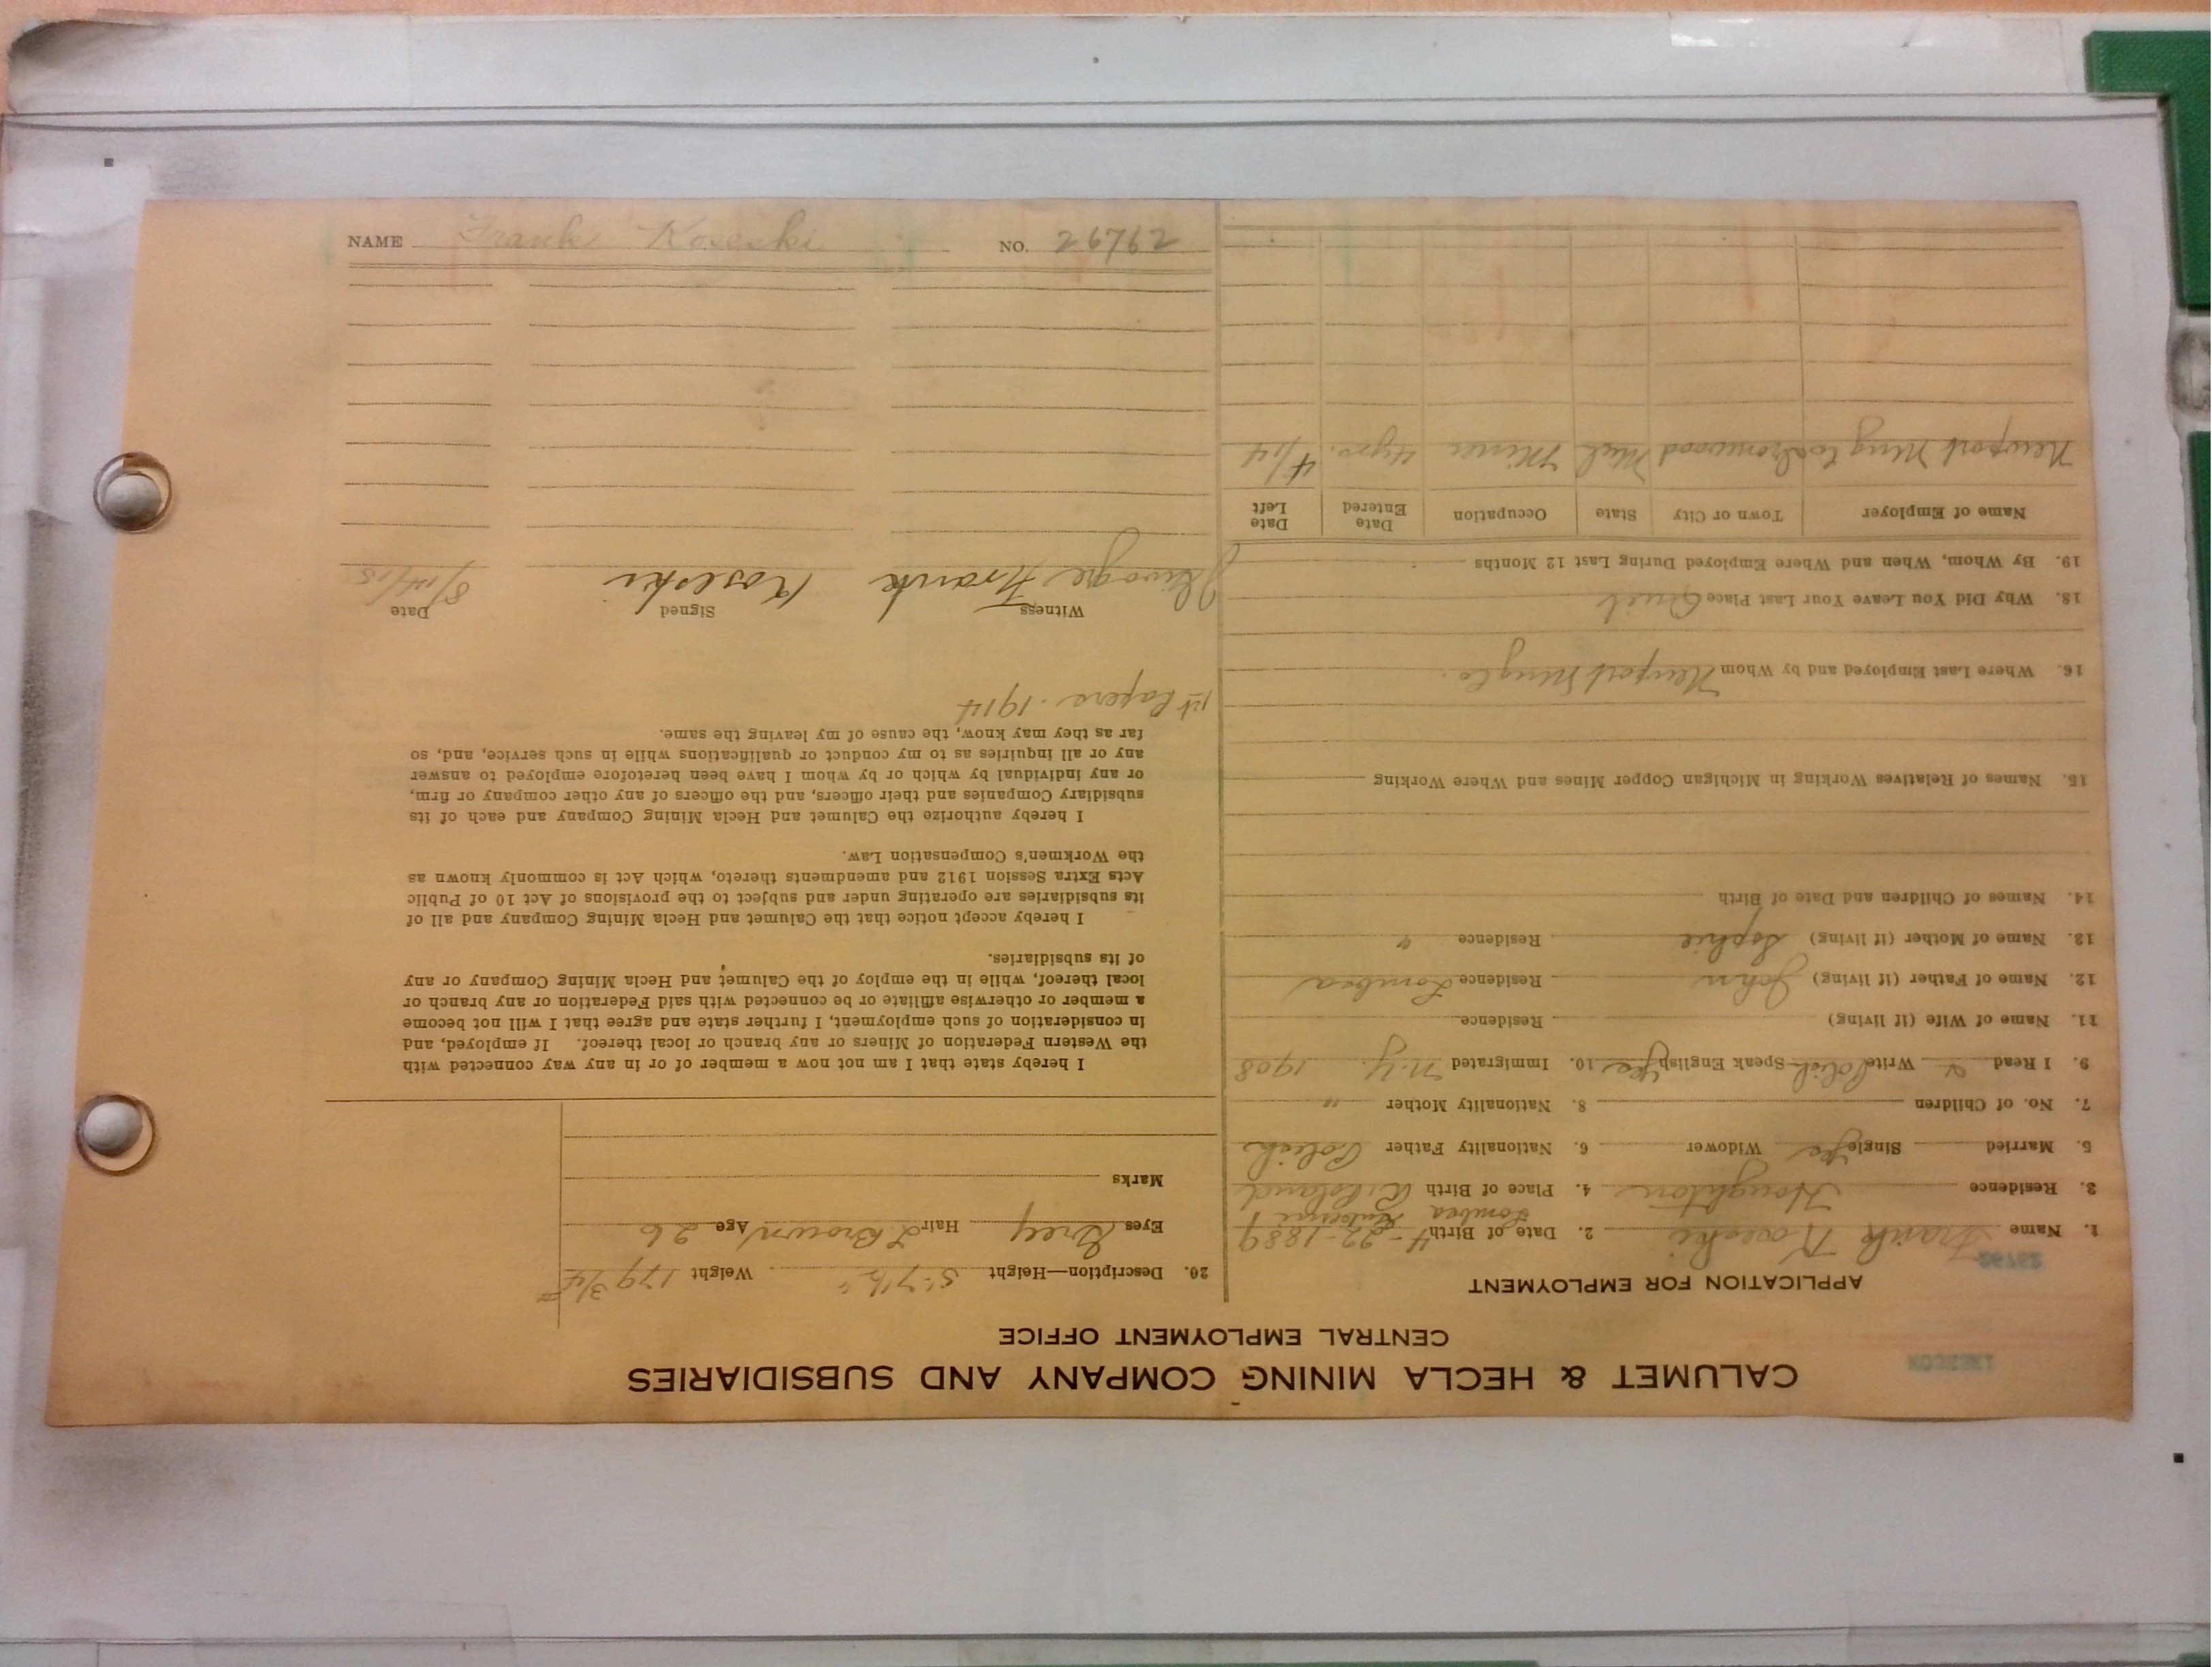 CALUMET & HECLA MINING COMPANY AND SUBSIDIARIES
CENTRAL EMPLOYMENT OFFICE
APPLICATION FOR EMPLOYMENT
1. Name Frank Koseski 2. Date of Birth 4-22-1889
3. Residence Houghton 4. Place of Birth Lombea R. Poland
5. Married Single Yes Widower 6. Nationality Father Polish
7. No. of Children 8. Nationality Mother "
9. I Read & Write Polish Speak English Yes 10. Immigrated N.Y. 1908
11. Name of Wife (if living) Residence
12. Name of Father (if living) John Residence Lombea
13. Name of Mother (if living) Sophie Residence "
14. Names of Children and Date of Birth
15. Names of Relatives Working in Michigan Copper Mines and Where Working
16. Where Last Employed and by Whom Newport Mng Co.
18. Why Did You Leave Your Last Place Quit
19. By Whom, When and Where Employed During Last 12 Months
Name of Employer Town or City State Occupation Date Entered Date Left
Newport Mng Co Ironwood Mich Miner 4 yrs. 4/14
20. Description—Height 5-7½" Weight 179 3/4#
Eyes Grey Hair L Brown Age 26
Marks
I hereby state that I am not now a member of or in any way connected with
the Western Federation of Miners or any branch or local thereof. If employed, and
in consideration of such employment, I further state and agree that I will not become
a member or otherwise affiliate or be connected with said Federation or any branch or
local thereof, while in the employ of the Calumet and Hecla Mining Company or any
of its subsidiaries.
I hereby accept notice that the Calumet and Hecla Mining Company and all of
its subsidiaries are operating under and subject to the provisions of Act 10 of Public
Acts Extra Session 1912 and amendments thereto, which Act is commonly known as
the Workmen's Compensation Law.
I hereby authorize the Calumet and Hecla Mining Company and each of its
subsidiary Companies and their officers, and the officers of any other company or firm,
or any individual by which or by whom I have been heretofore employed to answer
any or all inquiries as to my conduct or qualifications while in such service, and, so
far as they may know, the cause of my leaving the same.
1st Papers. 1914
Witness Signed Date
Frank Koseski 8/14/15
NAME Frank Koseski NO. 26762